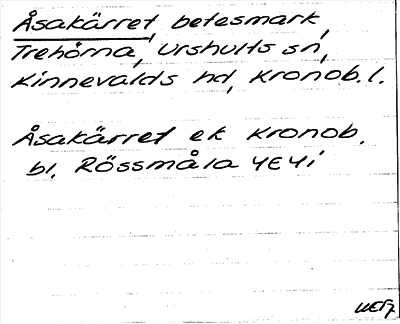 Åsakärret, betesmark,
Trehörna, Urshults sn,
Kinnevalds hd, Kronob. l.
Åsakärret ek Kronob.
bl. Rössmåla 4E4i